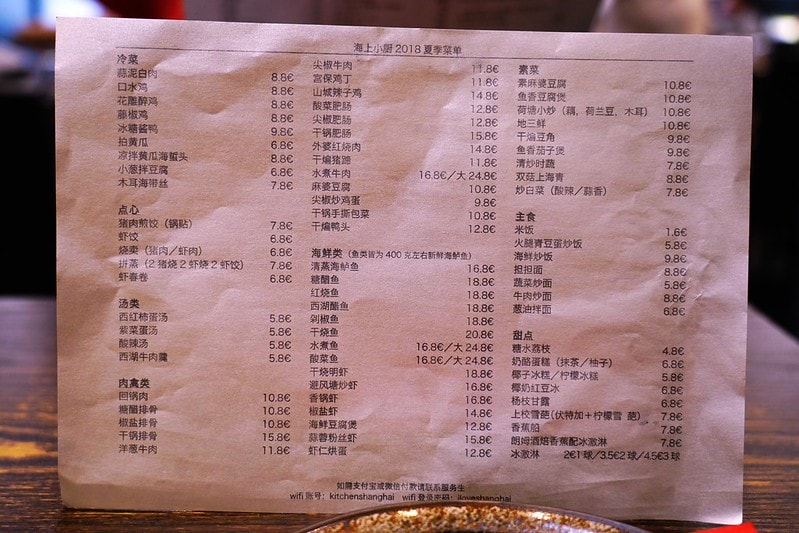 海上小厨 2018 夏季菜单
冷菜
蒜泥白肉 8.8€
口水鸡 8.8€
花雕醉鸡 8.8€
藤椒鸡 8.8€
冰糖酱鸭 9.8€
拍黄瓜 6.8€
凉拌黄瓜海蜇头 8.8€
小葱拌豆腐 6.8€
木耳海带丝 7.8€
点心
猪肉煎饺（锅贴） 7.8€
虾饺 6.8€
烧卖（猪肉／虾肉） 6.8€
拼蒸（2 猪烧 2 虾烧 2 虾饺） 7.8€
虾春卷 6.8€
汤类
西红柿蛋汤 5.8€
紫菜蛋汤 5.8€
酸辣汤 5.8€
西湖牛肉羹 5.8€
肉禽类
回锅肉 10.8€
糖醋排骨 10.8€
椒盐排骨 10.8€
干锅排骨 15.8€
洋葱牛肉 11.8€
尖椒牛肉 11.8€
宫保鸡丁 11.8€
山城辣子鸡 14.8€
酸菜肥肠 12.8€
尖椒肥肠 12.8€
干锅肥肠 15.8€
外婆红烧肉 14.8€
干煸猪蹄 11.8€
水煮牛肉 16.8€／大 24.8€
麻婆豆腐 10.8€
尖椒炒鸡蛋 9.8€
干锅手撕包菜 10.8€
干煸鸭头 12.8€
海鲜类（鱼类皆为 400 克左右新鲜海鲈鱼）
清蒸海鲈鱼 16.8€
糖醋鱼 18.8€
红烧鱼 18.8€
西湖醋鱼 18.8€
剁椒鱼 18.8€
干烧鱼 20.8€
水煮鱼 16.8€／大 24.8€
酸菜鱼 16.8€／大 24.8€
干烧明虾 18.8€
避风塘炒虾 18.8€
香锅虾 16.8€
椒盐虾 14.8€
海鲜豆腐煲 12.8€
蒜蓉粉丝虾 15.8€
虾仁烘蛋 12.8€
素菜
素麻婆豆腐 10.8€
鱼香豆腐煲 10.8€
荷塘小炒（藕，荷兰豆，木耳） 10.8€
地三鲜 10.8€
干煸豆角 9.8€
鱼香茄子煲 9.8€
清炒时蔬 7.8€
双菇上海青 8.8€
炒白菜（酸辣／蒜香） 7.8€
主食
米饭 1.6€
火腿青豆蛋炒饭 5.8€
海鲜炒饭 9.8€
担担面 8.8€
蔬菜炒面 5.8€
牛肉炒面 8.8€
葱油拌面 6.8€
甜点
糖水荔枝 4.8€
奶酪蛋糕（抹茶／柚子） 6.8€
椰子冰糕／柠檬冰糕 5.8€
椰奶红豆冰 6.8€
杨枝甘露 6.8€
上校雪葩(伏特加＋柠檬雪 葩） 7.8€
香蕉船 7.8€
朗姆酒焙香蕉配冰激淋 7.8€
冰激淋 2€1 球／3.5€2 球／4.5€3 球
如需支付宝或微信付款请联系服务生
wifi 账号：kitchenshanghai wifi 登录密码：iloveshanghai